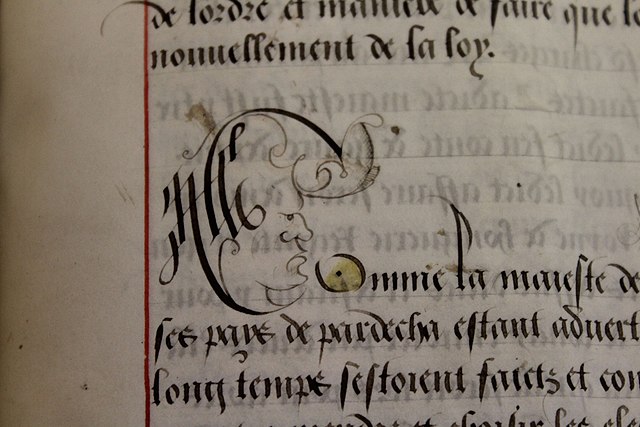 de lordre et maniere de faire que
nouuellement de la loy.
Comme la maieste de
ses pays de pardecha estant aduert
long temps sestoient faictz et
et choisir les